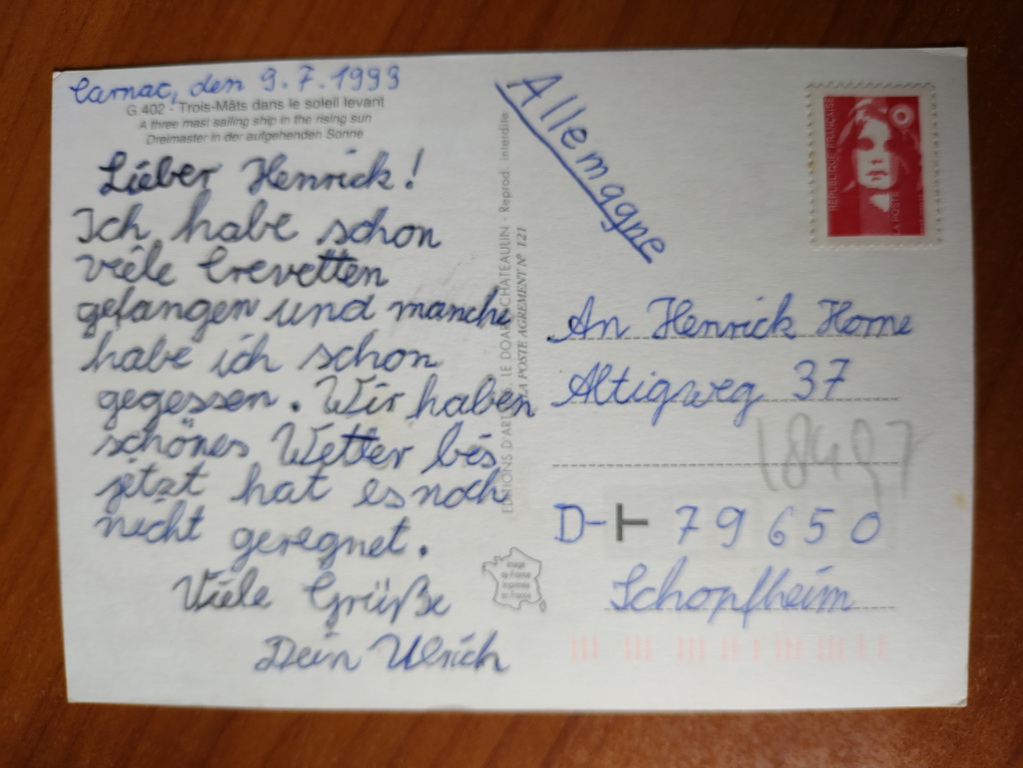 Carnac, den 9.7.1999
G.402 - Trois-Mâts dans le soleil levant
A three mast sailing ship in the rising sun
Dreimaster in der aufgehenden Sonne
Lieber Henrick!
Ich habe schon
viele Crevetten
gefangen und manche
habe ich schon
gegessen. Wir haben
schönes Wetter bis
jetzt hat es noch
nicht geregnet.
Viele Grüße
Dein Ulrich
EDITIONS D'ART LE DOARÉ CHATEAULIN - Reprod. interdite
LA POSTE AGREMENT N° 121
Image
de France
imprimée
en France
Allemagne
REPUBLIQUE FRANÇAISE
LA POSTE
An Henrick Horne
Altigsweg 37
18497
D-T 79650
Schopfheim